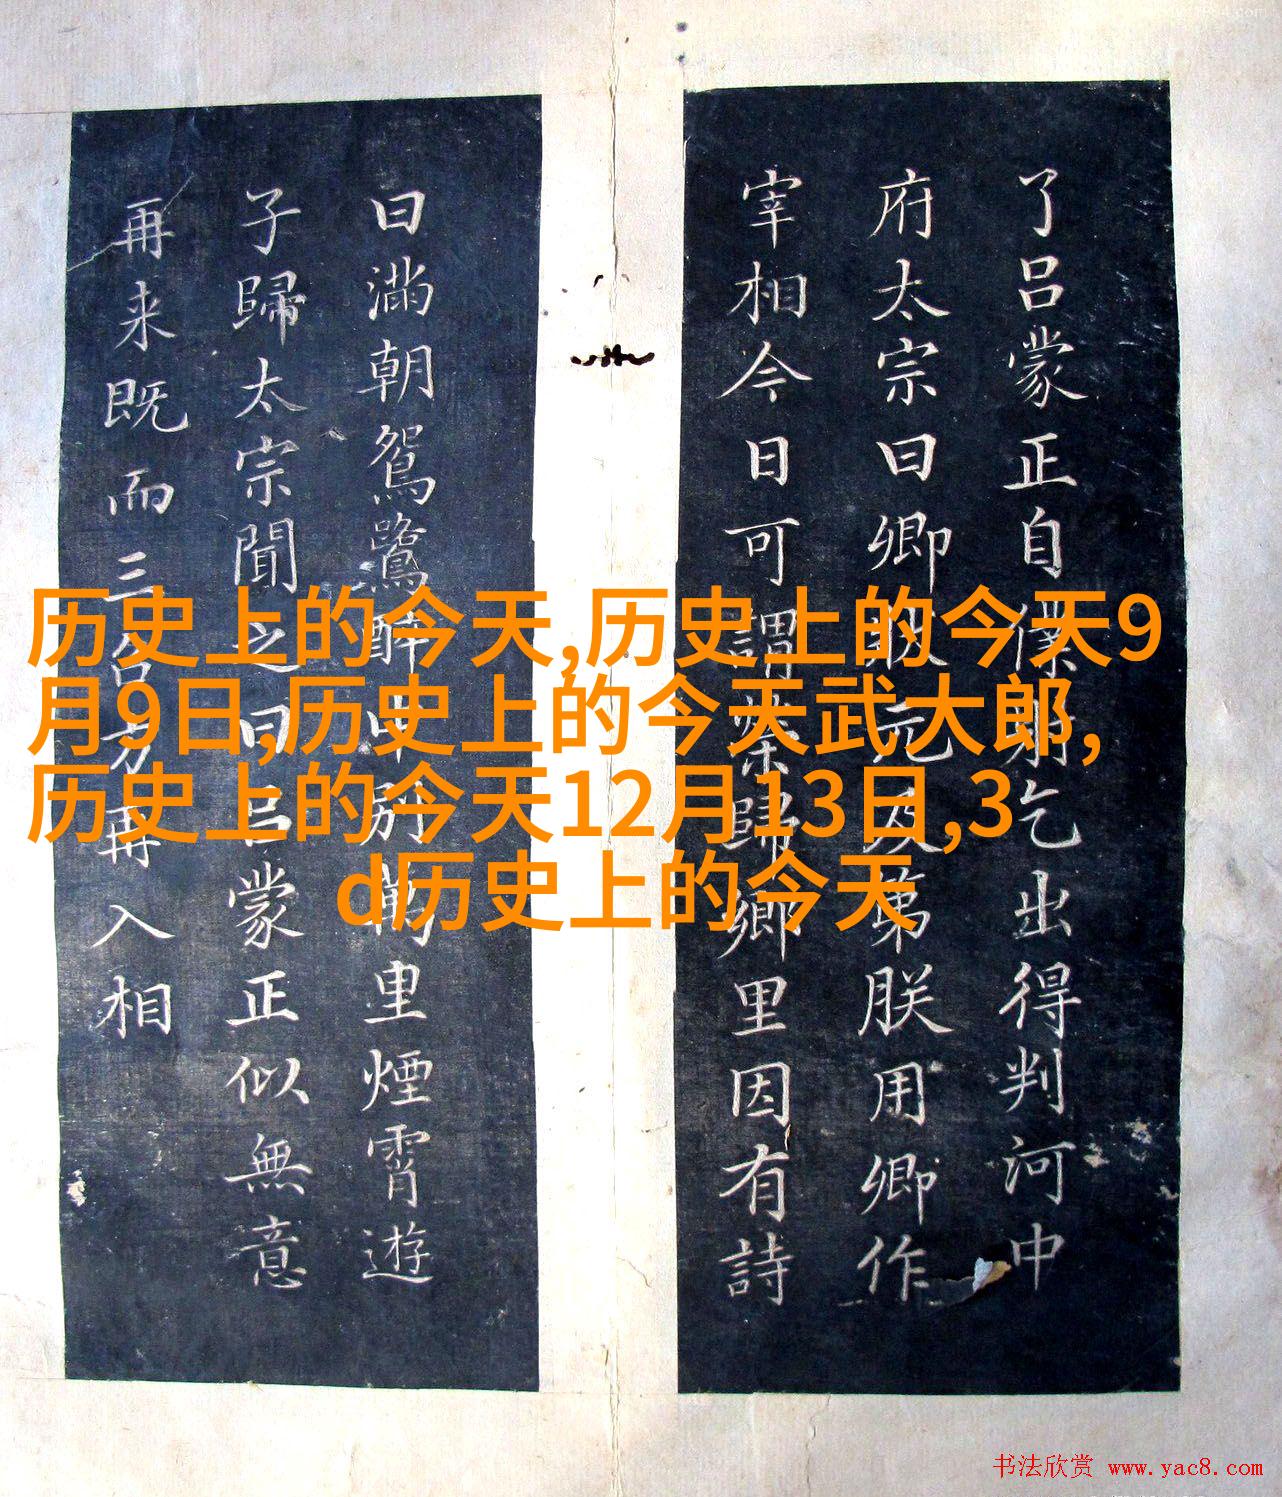 了吕蒙正自僕射乞出得判河中
府太宗曰卿狀元及第朕用卿作
宰相今日可謂榮歸鄉里因有詩
曰滿朝鴛鷺醉中別萬里煙霄遊
子歸太宗聞之曰吕蒙正似無意
再来既而三方再入相
历史上的今天,历史上的今天9
月9日,历史上的今天武大郎,
历史上的今天12月13日,3
d历史上的今天
书法欣赏 www.yac8.com